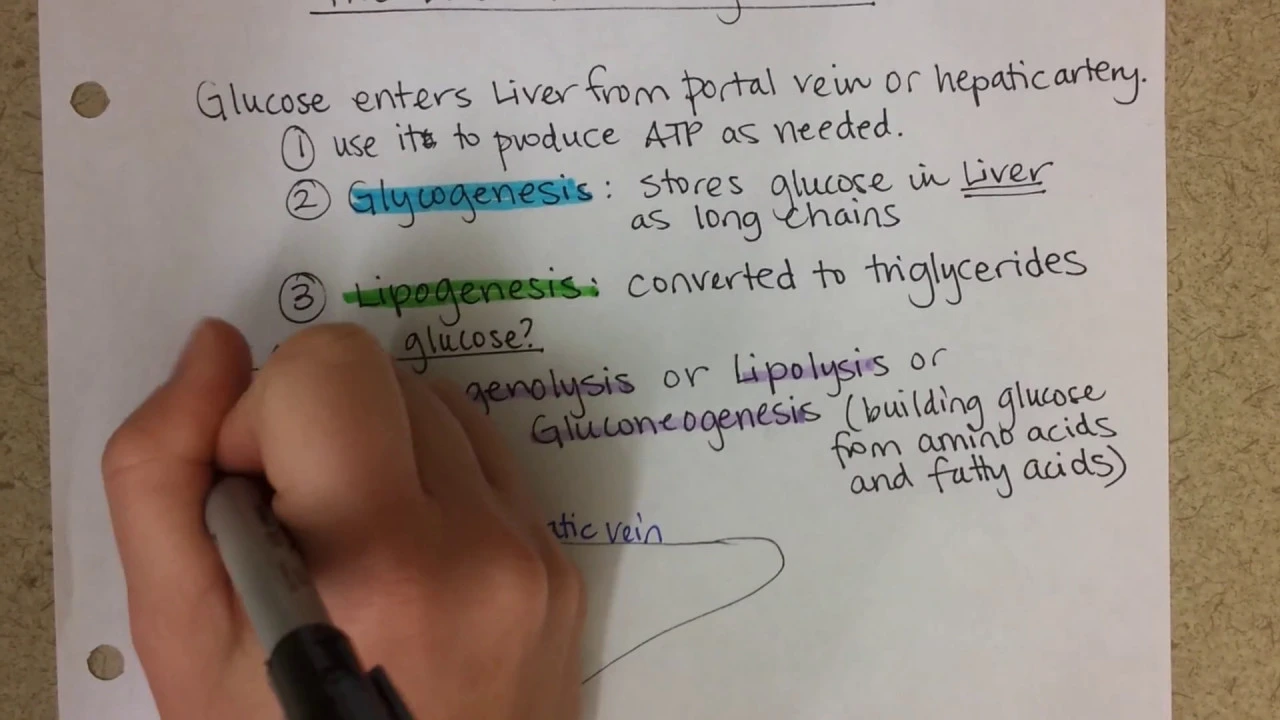 Glucose enters Liver from portal vein or hepatic artery.
① use it to produce ATP as needed.
② Glycogenesis: stores glucose in Liver
as long chains
③ Lipogenesis: converted to triglycerides
glucose?
genolysis or Lipolysis or
Gluconeogenesis (building glucose
from amino acids
and fatty acids)
atic vein